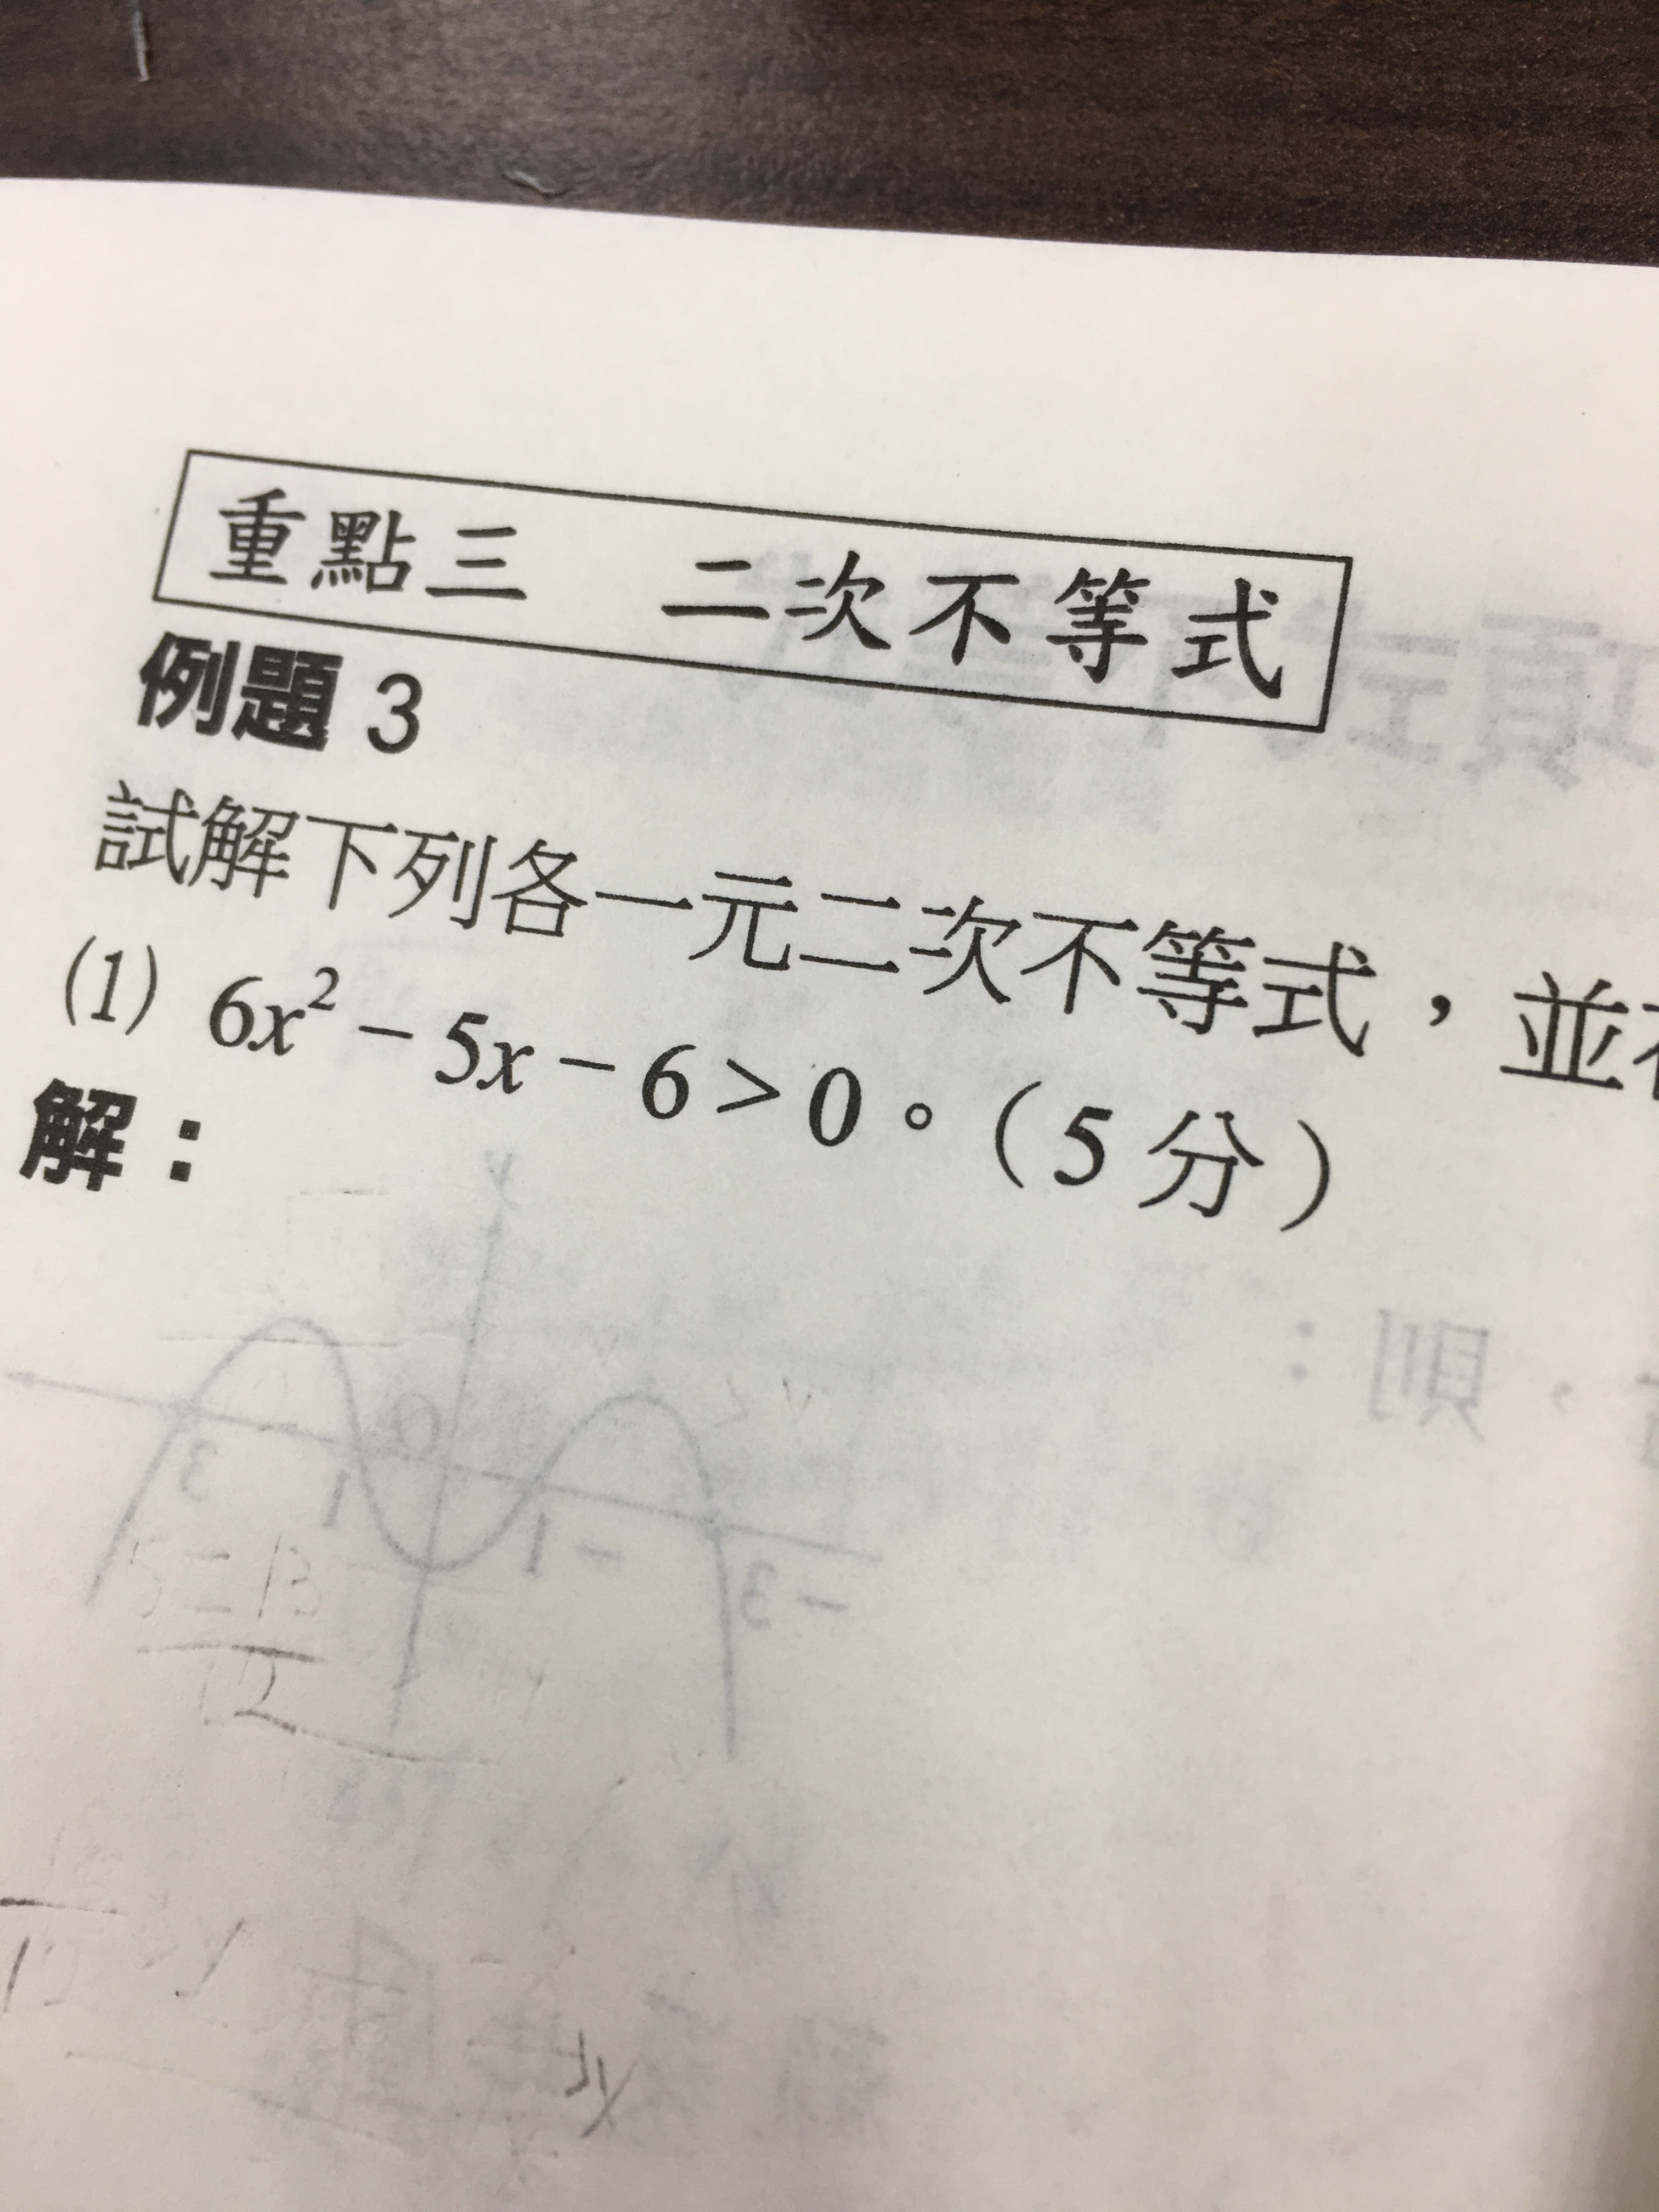 重點三 二次不等式
例題 3
試解下列各一元二次不等式，並
(1) 6x² − 5x − 6 > 0。（5 分）
解：